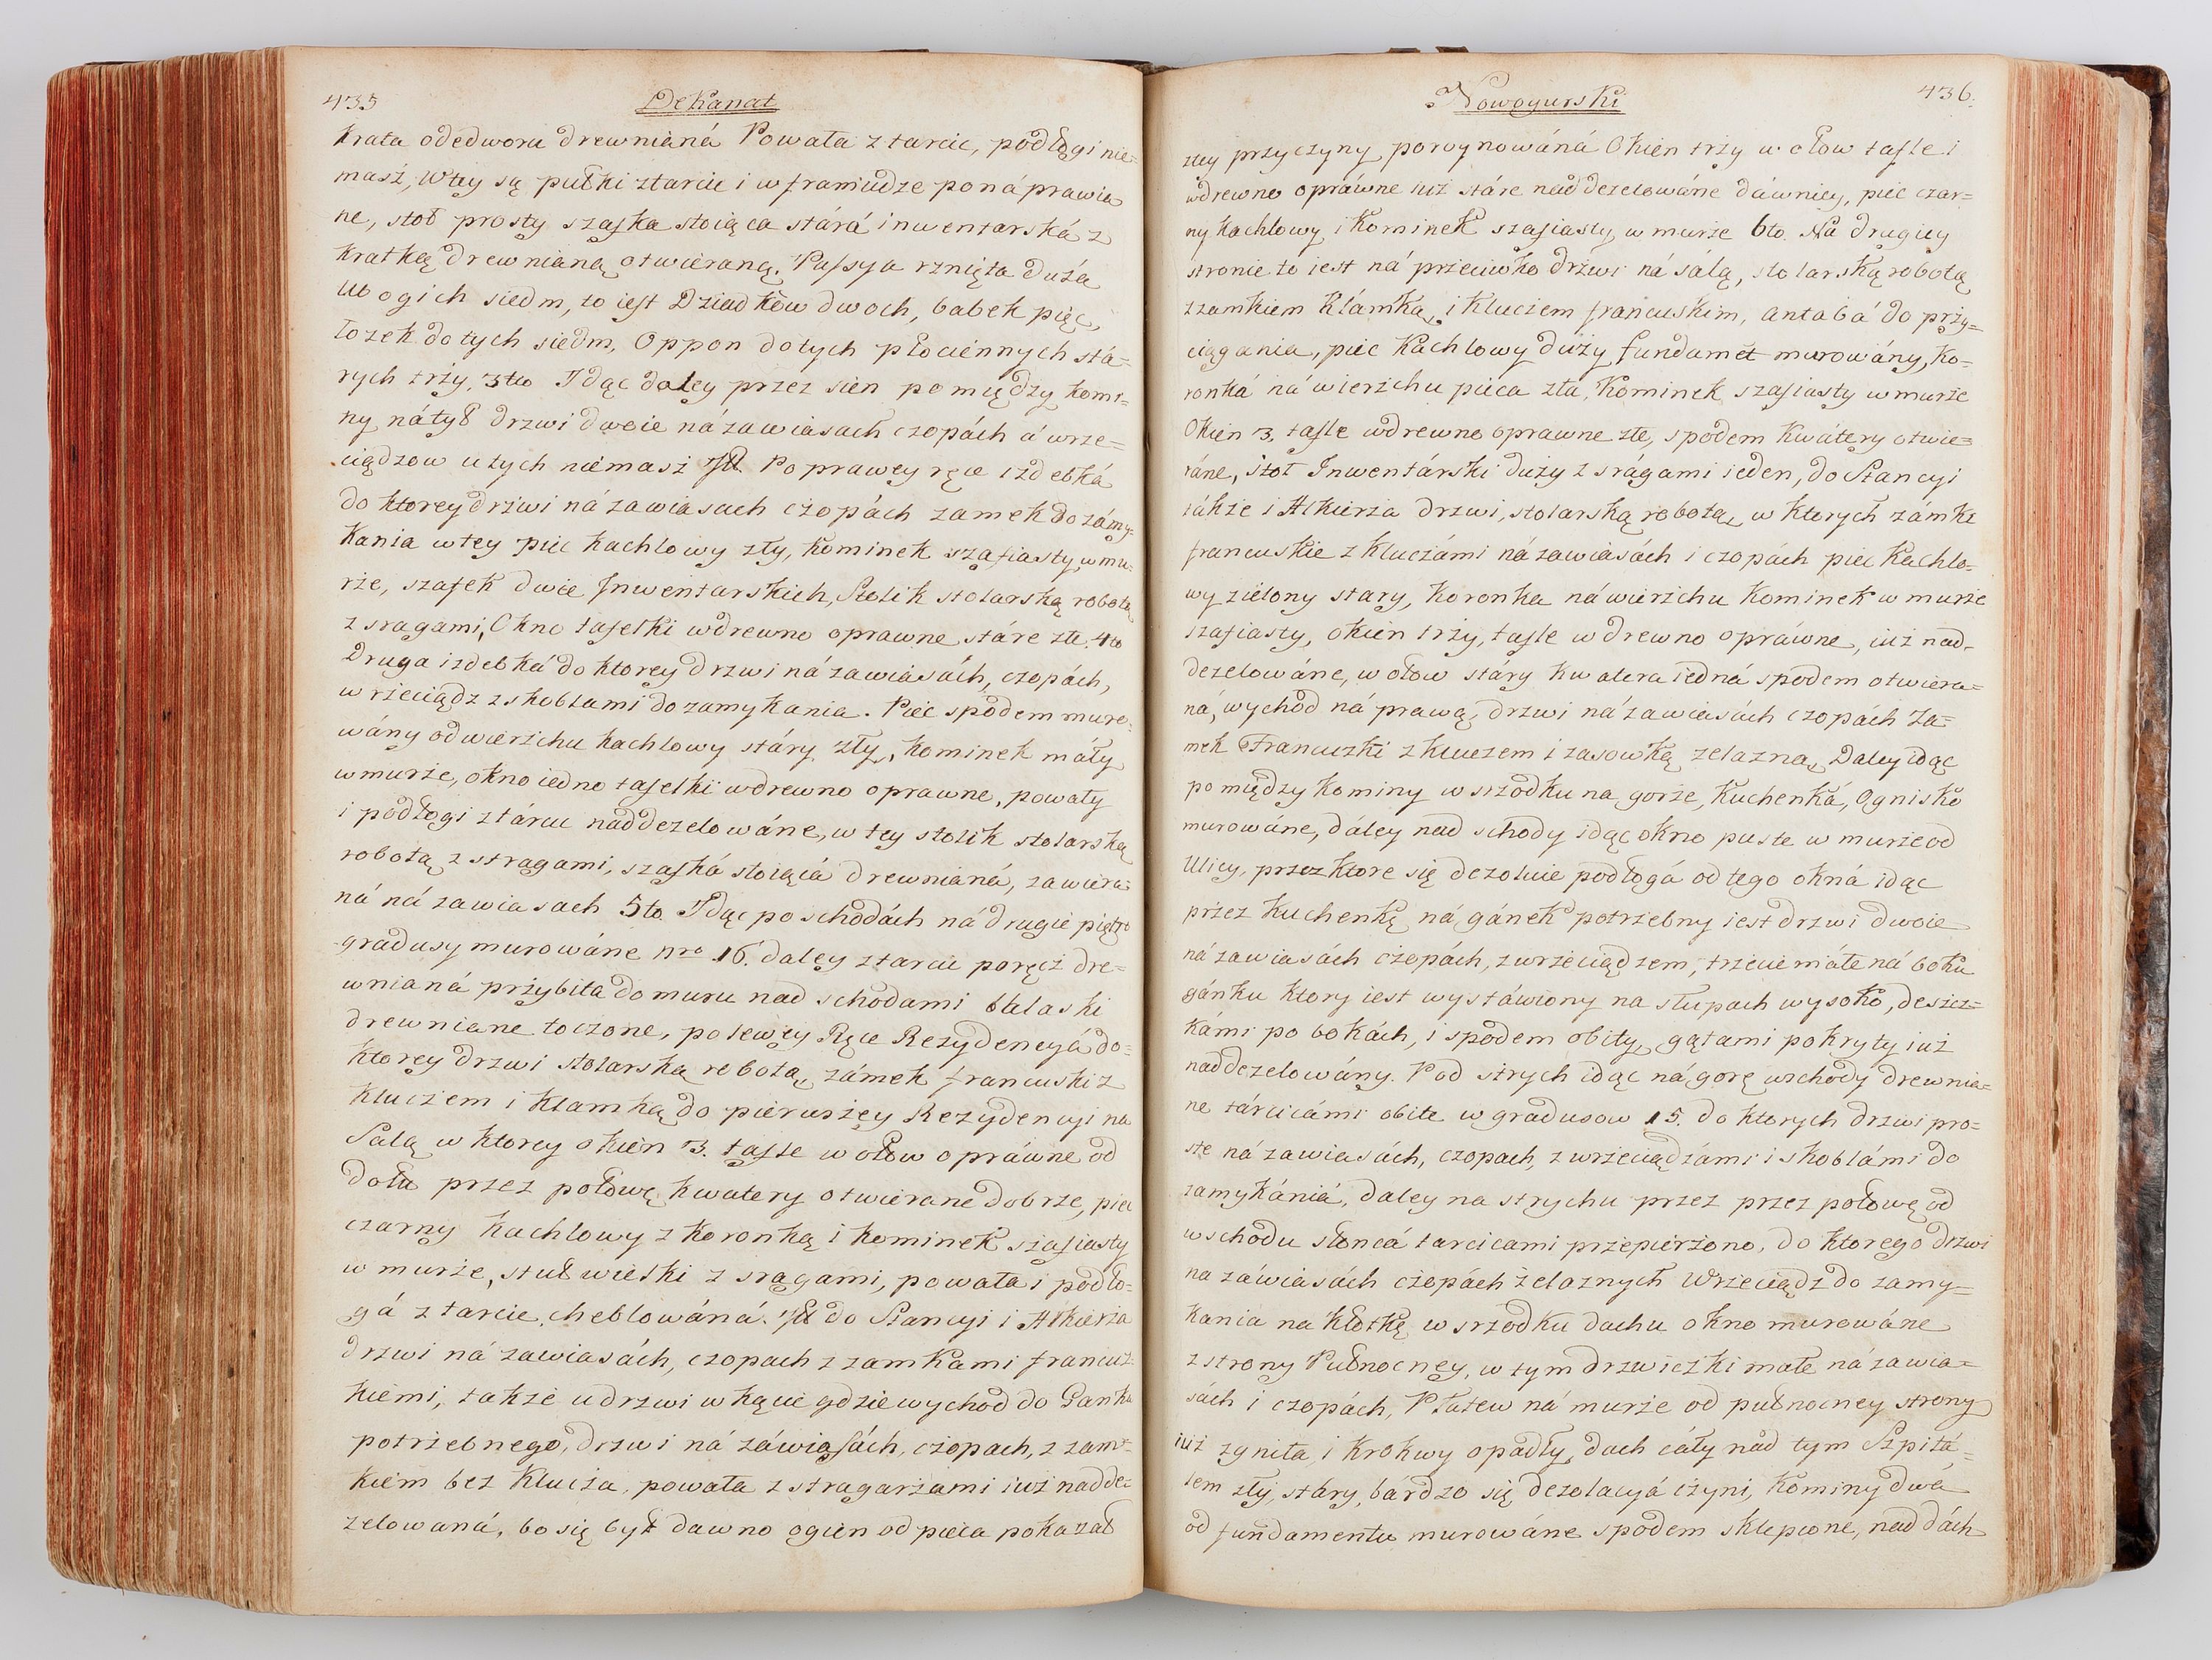 435
Dekanat
krata odedworu drewnianá Powała z tarcic, podłogi nie=
masż, wtey są pułki ztarcic i w framudze ponáprawia
ne, stoł prosty szafka stoiąca stárá inwentarská z
kratką drewnianą otwieraną. Passya rznięta duźa
Ubogich siedm, to iest Dziadkow dwoch, babek pięc,
łozek dotych siedm, Oppon dotych płociennych stá=
rych trży, 3tio Idąc daley przez sien pomiędzy komi=
ny, nátył drzwi dwoie ná zawiasach czopách á wrze=
ciądzow utych niemasż Po prawey ręce izdebká
do ktorey drżwi ná zawiasach cżopách zamek do zámy=
kania wtey piec kachlowy zły, kominek szafiasty w mu=
rże, szafek dwie Inwentarskich, Stolik stolarską robotą
z sragami, Okno tafelki wdrewno oprawne stáre złe. 4to
Druga izdebká do ktorey drzwi ná zawiasách, czopách,
wrżeciądz z skoblami do zamykania. Piec spodem muro=
wány odwierżchu kachlowy stáry zły, kominek máły
w murże, okno iedno tafelki wdrewno oprawne, powały
i podłogi z tárcic naddezelowáne, w tey stolik stolarską
robotą z stragami, szafká stoiącá drewnianá, zawiera=
ná ná zawiasach 5to. Idąc po schodách ná drugie piętro
gradusy murowáne nro 16. daley z tarcic poręcż dre=
wnianá przybita do muru nad schodami balaski
drewniane toczone, polewey Ręce Rezydencyá do=
ktorey drzwi stolarska robotą, zámek francuski z
kluczem i klamką do pierwszey Rezydencyi na
Salą w ktorey okien 3. tafle w ołow opráwne od
dołu przez połowę kwatery otwierane dobrze, piec
czarny kachlowy z koronką i kominek szafiasty
w murże, stuł wielki z srągami, powała i podło=
gá z tarcic cheblowáná. do Stancyi i Alkierża
drzwi ná zawiasách, czopach z zamkami francuz=
kiemi, takze udrzwi w kącie gdzie wychod do Ganku
potrżebnego, drzwi ná záwiasách, czopach, z zam=
kiem bez klucża, powała z stragarżami iuż nadde=
zelowaná, bo się był dawno ogien od pieca pokazał
Nowogurski
436.
złey przyczyny poruynowáná Okien trży w ołow tafle i
wdrewno opráwne iuż stáre naddezelowáne dáwniey, piec czar=
ny kachlowy i Kominek szafiasty w murże 6to. Ná drugiey
stronie to iest ná przeciwko drżwi ná sálą, stolarską robotą
z zamkiem klámką, i Kluczem francuskim, antabá do prży=
ciągania, piec kachlowy duży fundamēt murowány, ko=
ronká ná wierżchu pieca zła, Kominek szafiasty w murże
Okien 3. tafle wdrewno oprawne złe, spodem kwátery otwie=
ráne, stoł Inwentárski duży z srágami ieden, do Stancyi
tákże i Alkierża drzwi, stolarską robotą, w ktorych zámki
francuskie z kluczámi ná zawiasách i czopách piec kachlo=
wy zielony stary, koronka ná wierżchu Kominek w murże
szafiasty, okien trży, tafle w drewno opráwne, iuż nad=
dezelowáne, w ołow stáry kwatera iedná spodem otwiera=
ná, wychod ná prawą, drzwi ná zawiasách czopách Za=
mek Francuzki z kluczem i zasowką zelazną, Daley idąc
pomiędzy kominy w srżodku na gorże, Kuchenká, Ognisko
murowáne, dáley nad schody idąc okno puste w murże od
Ulicy, przez ktore się dezoluie podłogá od tego okná idąc
przez Kuchenkę ná gánek potrzebny iest drzwi dwoie
ná zawiasách cżopách, z wrżeciądzem, trzecie máłe ná boku
gánku ktory iest wystáwiony na słupach wysoko, deszcz=
kámi po bokách, i spodem obity, gątami pokryty iuż
naddezelowány. Pod strych idąc ná gorę wschody drewnia=
ne tárcicámi obite w gradusow 15. do ktorych drzwi pro=
ste ná zawiasách, czopach, z wrżeciądzámi i skoblámi do
zamykániá, daley na strychu przez przez połowę od
wschodu słoncá tarcicami przepierżono, do ktorego drzwi
na záwiasách cżopách żelaznych Wrżeciądz do zamy=
kania na kłotkę w srżodku dachu okno murowáne
z strony Pułnocney, w tym drzwiczki małe ná zawia=
sách i czopách, Płatew ná murże od pułnocney strony
iuż zgniła, i krokwy opadły, dach cáły nád tym Szpitá=
lem zły, stáry, bárdzo się dezolacyá czyni, Kominy dwa
od fundamentu murowáne spodem sklepione, nad dách